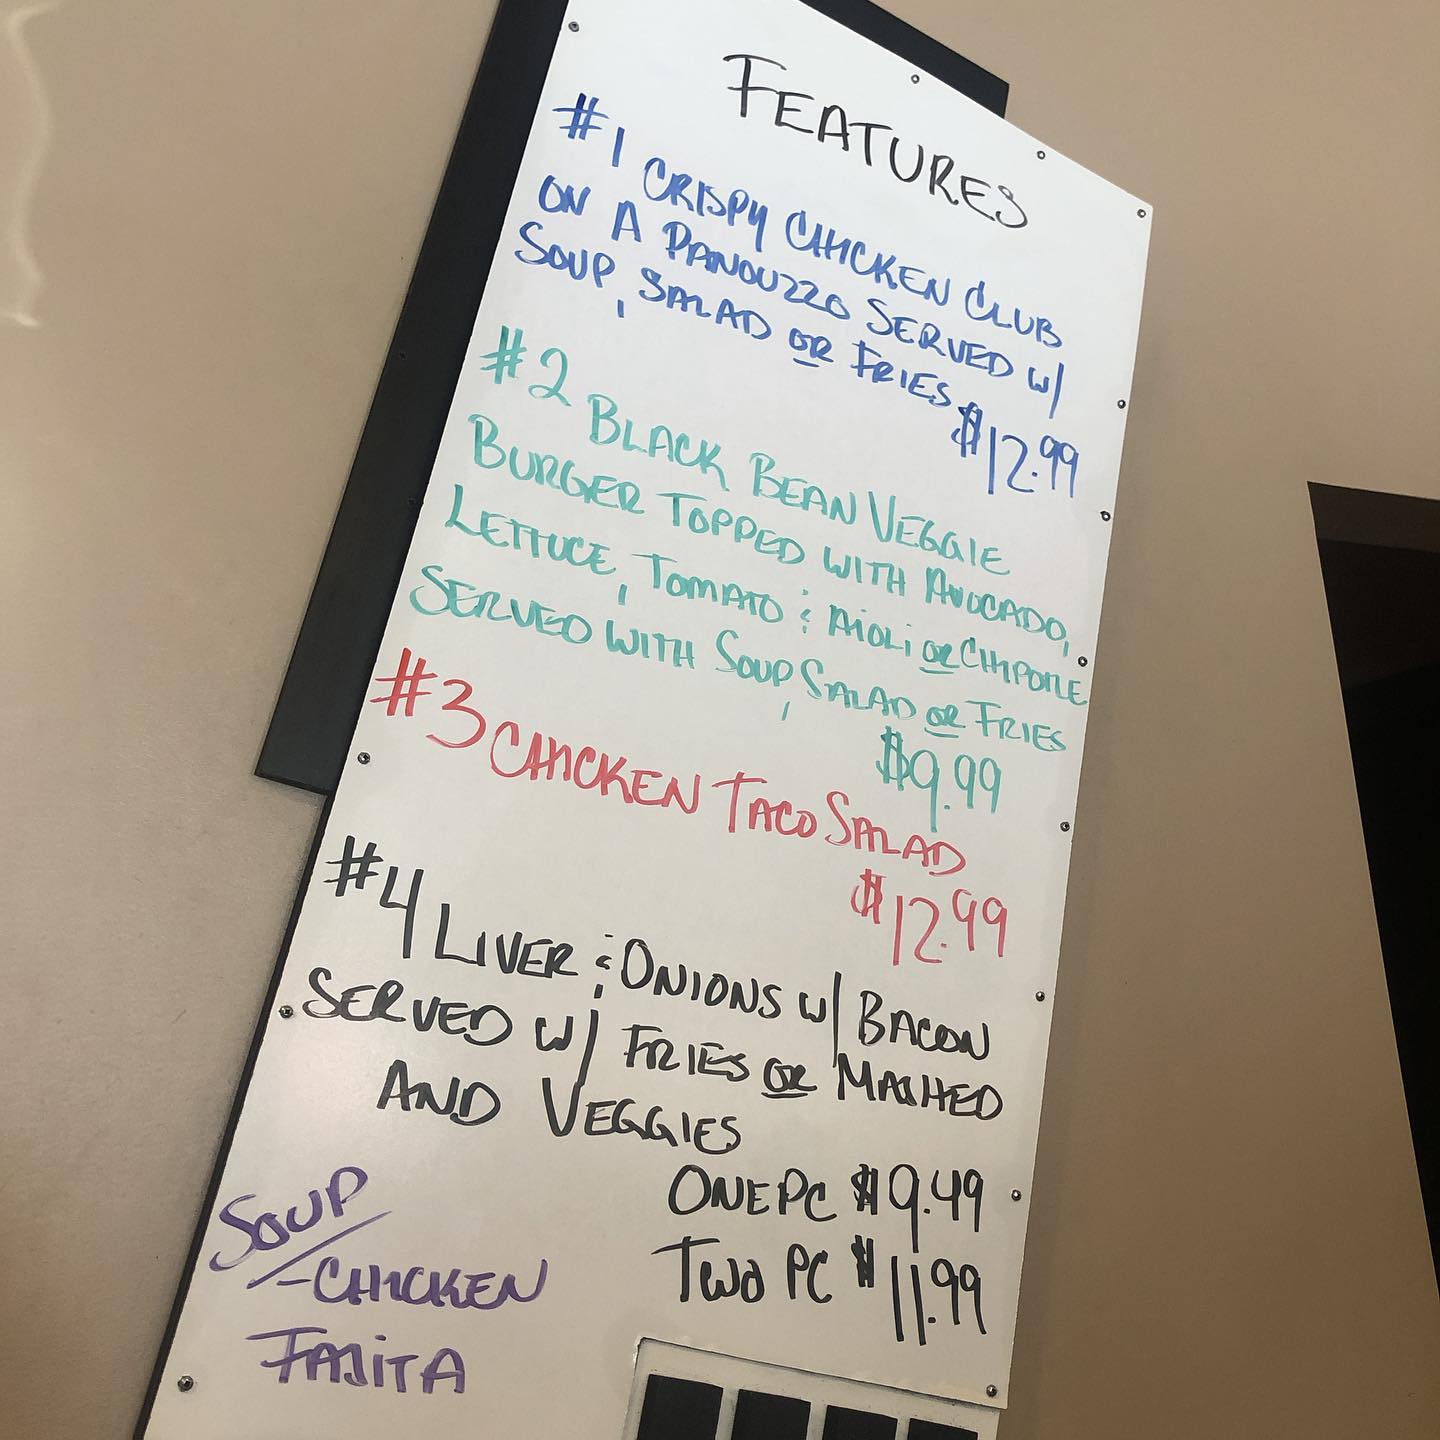 FEATURES
#1 CRISPY CHICKEN CLUB
ON A PANOUZZO SERVED W/
SOUP, SALAD OR FRIES
$12.99
#2 BLACK BEAN VEGGIE
BURGER TOPPED WITH AVOCADO,
LETTUCE, TOMATO & AIOLI OR CHIPOTLE
SERVED WITH SOUP, SALAD OR FRIES
$9.99
#3 CHICKEN TACO SALAD
$12.99
#4 LIVER & ONIONS W/ BACON
SERVED W/ FRIES OR MASHED
AND VEGGIES
ONE PC $9.49
TWO PC $11.99
SOUP
-CHICKEN
FAJITA